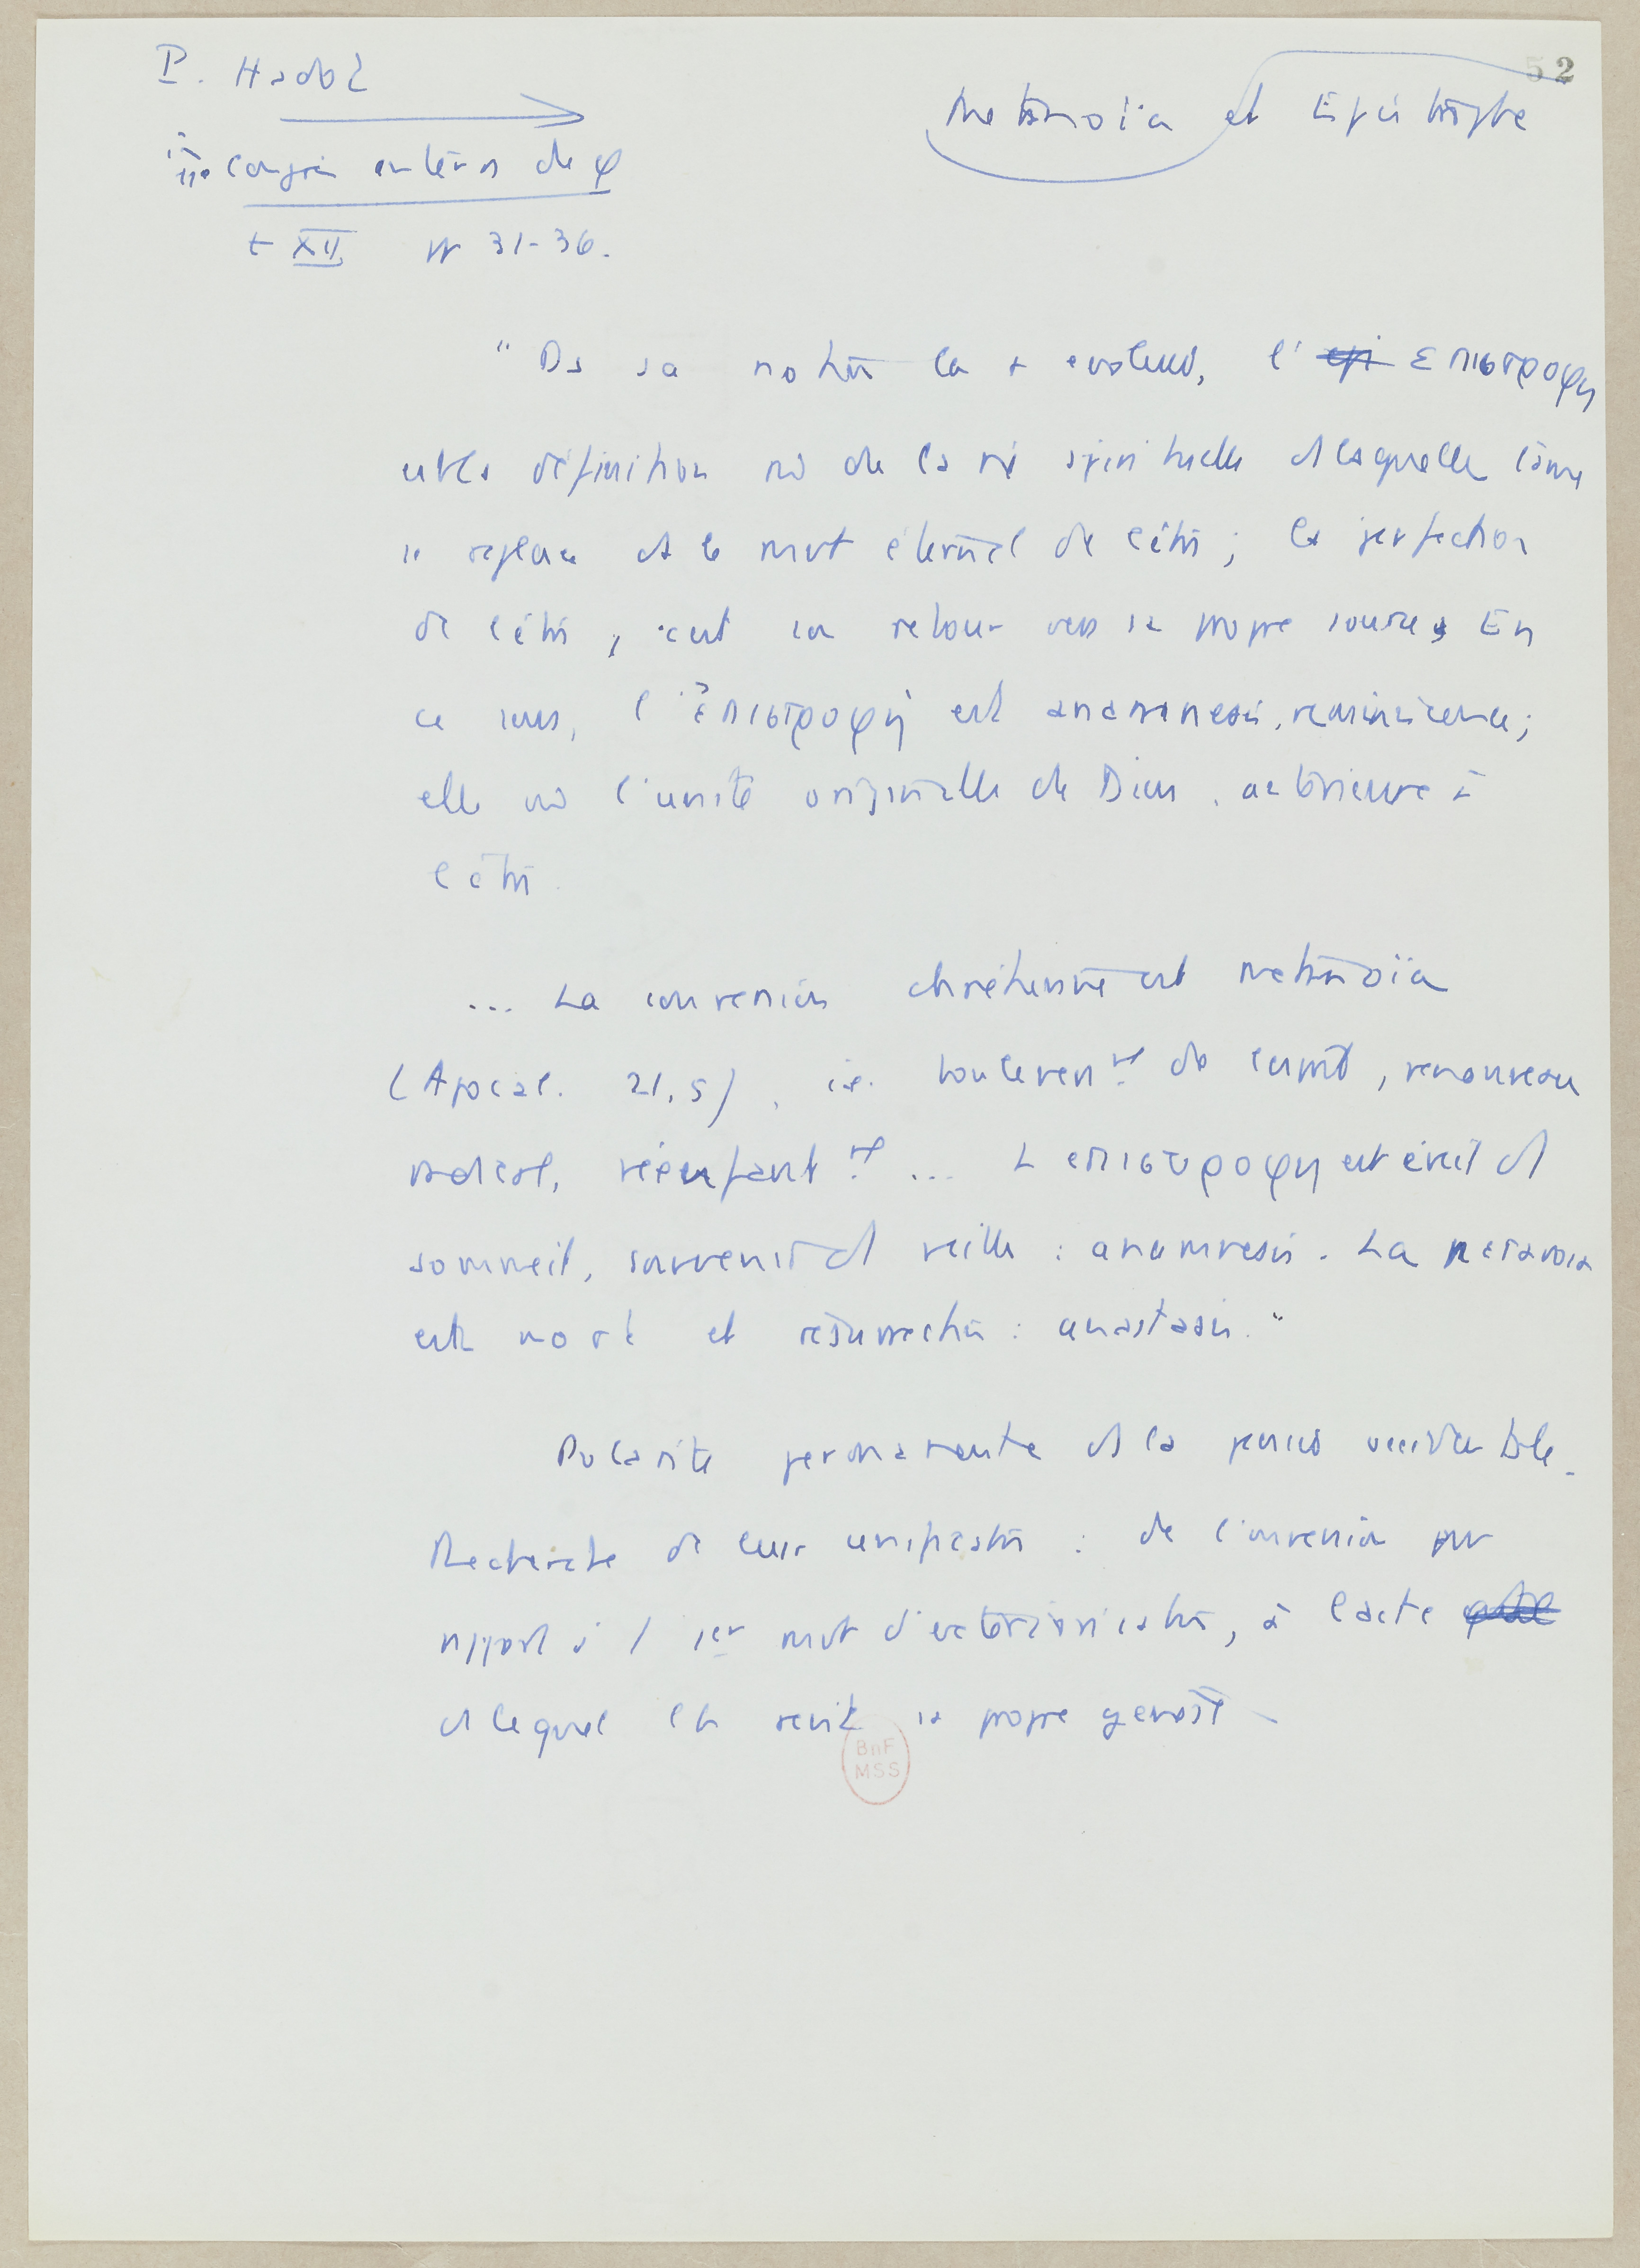 52
P. Hadot
Metanoïa et Epistrophe
congrès intern de φ
t XII pp 31-36.
" Ds sa notion la + évoluée, l' epi επιστροφη
est la définition mê de la vie spirituelle ds laquelle l'âme
se replace ds le mvt éternel de l'être ; la perfection
de l'être, c'est son retour vers sa propre source. En
ce sens, l'ἐπιστροφή est anamnesis, réminiscence ;
elle vise l'unité originelle de Dieu, antérieure à
l'être.
... La conversion chrétienne est metanoïa
(Apocal. 21, 5), i.e. boulevert de l'esprit, renouveau
radical, réenfantt ... L επιστροφη est éveil ds
sommeil, souvenir ds veille : anamnesis. La μετανοια
est mort et résurrection : anastasis."
Polarité permanente ds la pensée occidentale.
Recherche de leur unification : de conversion par
rapport à 1 1er mvt d'extériorisation, à l'acte
ds lequel l'être revit sa propre genèse
BnF
MSS